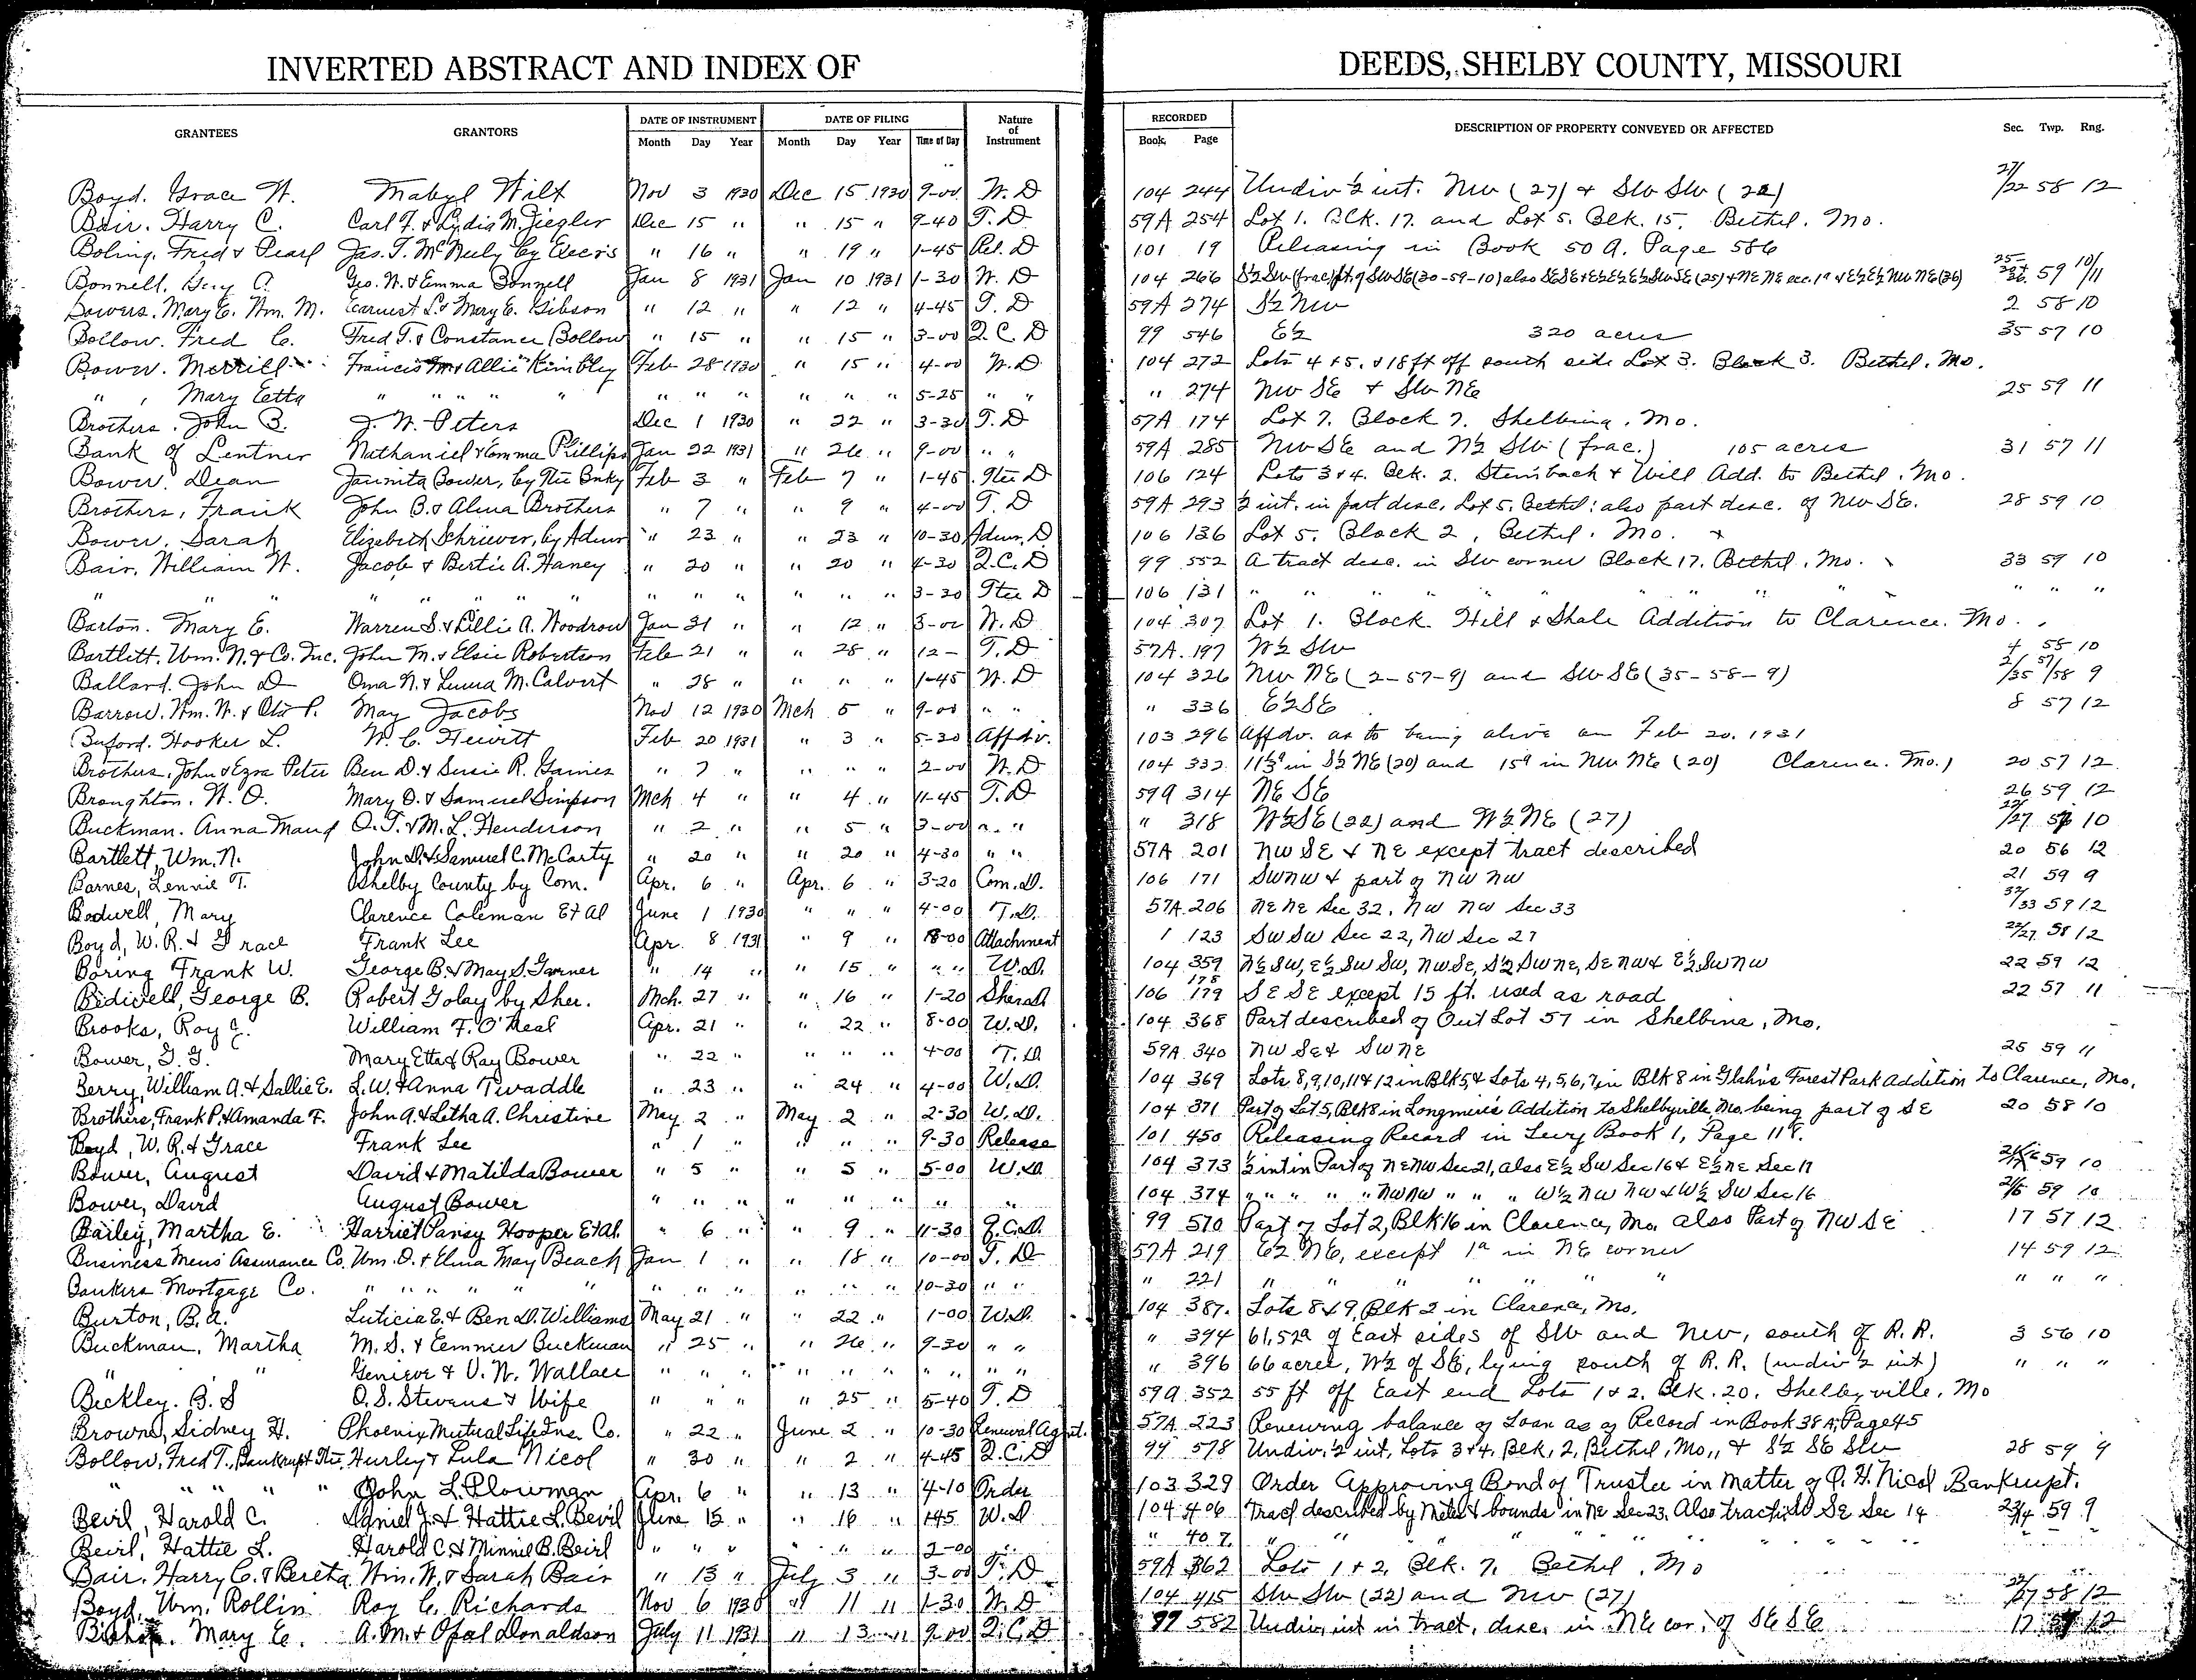 INVERTED ABSTRACT AND INDEX OF DEEDS, SHELBY COUNTY, MISSOURI
GRANTEES GRANTORS DATE OF INSTRUMENT DATE OF FILING Nature of Instrument RECORDED DESCRIPTION OF PROPERTY CONVEYED OR AFFECTED Sec. Twp. Rng.
Month Day Year Month Day Year Time of Day Book Page
Boyd. Grace W. Mabyl Wilt Nov 3 1930 Dec 15 1930 9-00 W. D 104 244 Undiv ½ int. NW (27) & SW SW (22) 27/22 58 12
Bair. Harry C. Carl F. & Lydia M. Ziegler Dec 15 " " 15 " 9-40 T. D 59A 254 Lot 1. Blk. 17. and Lot 5. Blk. 15. Bethel. Mo.
Boling. Fred & Pearl Jas. T. McNeely by Exec's " 16 " " 19 " 1-45 Rel. D 101 19 Releasing in Book 50 A. Page 586
Bonnell. Guy A. Geo. W. & Emma Bonnell Jan 8 1931 Jan 10 1931 1-30 W. D 104 266 S½ SW (frac) pt. of SW SE (30-59-10) also SE SE & E½ E½ E½ SW SE (25) & NE NE exc. 1a & E½ E½ NW NE (36) 59 10/11
Bowers. Mary E. Wm. M. Earnest L. & Mary E. Gibson " 12 " " 12 " 4-45 T. D 59A 274 S½ NW 2 58 10
Bollow. Fred C. Fred T. & Constance Bollow " 15 " " 15 " 3-00 Q. C. D 99 546 E½ 320 acres 35 57 10
Bower. Merrill Francis M. & Allie Kimbley Feb 28 1930 " 15 " 4-00 W. D 104 272 Lots 4 & 5. & 18 ft off south side Lot 3. Block 3. Bethel. Mo.
" , Mary Etta " " " " " " " " " " " 5-25 " " " 274 NW SE & SW NE 25 59 11
Brothers. John B. J. W. Peters Dec 1 1930 " 22 " 3-30 T. D 57A 174 Lot 7. Block 7. Shelbina. Mo.
Bank of Lentner Nathaniel & Emma Phillips Jan 22 1931 " 26 " 9-00 " " 59A 285 NW SE and N½ SW (frac.) 105 acres 31 57 11
Bower. Dean Jaunita Bower, by Tte Bnky Feb 3 " Feb 7 " 1-45 Ttee D 106 124 Lots 3 & 4. Blk. 2. Steinbach & Will Add. to Bethel. Mo.
Brothers, Frank John B. & Alma Brothers " 7 " " 9 " 4-00 T. D 59A 293 ½ int. in part desc. Lot 5. Bethel: also part desc. of NW SE. 28 59 10
Bower. Sarah Elizabeth Schriever, by Admr " 23 " " 23 " 10-30 Admr. D 106 136 Lot 5. Block 2, Bethel. Mo.
Bair. William W. Jacob & Bertie A. Haney " 20 " " 20 " 4-30 Q. C. D 99 552 A tract desc. in SW corner Block 17. Bethel, Mo. 33 59 10
" " " " " " " " " " " " " " 3-20 Ttee D 106 131 " " " " " " " " " "
Barton. Mary E. Warren S. & Lillie A. Woodrow Jan 31 " " 12 " 3-00 W. D 104 307 Lot 1. Block. Hill & Shale Addition to Clarence. Mo.
Bartlett. Wm. N. & Co. Inc. John M. & Elsie Robertson Feb 21 " " 28 " 12- T. D 57A. 197 W½ SW 4 58 10
Ballard. John D Oma N. & Luna M. Calvert " 28 " " " " 1-45 W. D 104 326 NW NE (2-57-9) and SW SE (35-58-9) 2/35 57/58 9
Barrow. Wm. W. & Ola P. May Jacobs Nov 12 1930 Mch 5 " 9-00 " " " 336 E½ SE 8 57 12
Buford. Hooker L. W. C. Hewitt Feb 20 1931 " 3 " 5-30 Affdv. 103 296 Affdv. as to being alive on Feb 20. 1931
Brothers, John & Ezra Peter Ben D. & Susie R. Gaines " 7 " " " " 2-00 W. D 104 332 11⅓a in S½ NE (20) and 15a in NW NE (20) Clarence. Mo.) 20 57 12
Broughton. W. O. Mary O. & Samuel Simpson Mch 4 " " 4 " 11-45 T. D 59A 314 NE SE 26 59 12
Buckman. Anna Maud O. T. & M. L. Henderson " 2 " " 5 " 3-00 " " " 318 W½ SE (22) and W½ NE (27) 22/27 56 10
Bartlett, Wm. N. John D. & Samuel C. McCarty " 20 " " 20 " 4-30 " " 57A 201 NW SE & NE except tract described 20 56 12
Barnes, Lennie T. Shelby County by Com. Apr. 6 " Apr. 6 " 3-20 Com. D. 106 171 SW NW & part of NW NW 21 59 9
Bodwell, Mary Clarence Coleman Et Al June 1 1930 " " " 4-00 T. D. 57A. 206 NE NE Sec 32, NW NW Sec 33 32/33 59 12
Boyd, W. R. & Grace Frank Lee Apr. 8 1931 " 9 " 8-00 Attachment 1 123 SW SW Sec 22, NW Sec 27 22/27 58 12
Boring Frank W. George B. & May S. Garner " 14 " " 15 " " " W. D. 104 359 N½ SW, E½ SW SW, NW SE, S½ SW NE, SE NW & E½ SW NW 22 59 12
Bidwell, George B. Robert Golay by Sher. Mch. 27 " " 16 " 1-20 Sher D. 106 178 179 SE SE except 15 ft. used as road 22 57 11
Brooks, Roy E. William F. O'Neal Apr. 21 " " 22 " 8-00 W. D. 104 368 Part described of Out Lot 57 in Shelbina, Mo.
Bower, G. G. Mary Etta & Ray Bower " 22 " " " " 4-00 T. D. 59A 340 NW SE & SW NE 25 59 11
Berry, William A. & Sallie E. L. W. & Anna Twaddle " 23 " " 24 " 4-00 W. D. 104 369 Lots 8, 9, 10, 11 & 12 in Blk 5, & Lots 4, 5, 6, 7, in Blk 8 in Glahn's Forest Park Addition to Clarence, Mo.
Brothers, Frank P. & Amanda F. John A. & Letha A. Christine May 2 " May 2 " 2-30 W. D. 104 371 Part of Lot 5, Blk 8 in Longmire's Addition to Shelbyville, Mo. being part of SE 20 58 10
Boyd, W. R. & Grace Frank Lee " 1 " " " " 9-30 Release 101 450 Releasing Record in Levy Book 1, Page 118.
Bower, August David & Matilda Bower " 5 " " 5 " 5-00 W. D. 104 373 ½ int in Part of NE NW Sec 21, also E½ SW Sec 16 & E½ NE Sec 17 59 10
Bower, David August Bower " " " " " " " " 104 374 " " " " " NW NW " " " W½ NW NW & W½ SW Sec 16 59 10
Bailey, Martha E. Harriet Pansy Hooper Et Al. " 6 " " 9 " 11-30 Q. C. D. 99 570 Part of Lot 2, Blk 16 in Clarence, Mo. also Part of NW SE 17 57 12
Business Mens Assurance Co. Wm. O. & Elma May Beach Jan 1 " " 18 " 10-00 T. D 57A 219 E½ NE, except 1a in NE corner 14 59 12
Bankers Mortgage Co. " " " " " " " " " " " " 10-30 " " " 221 " " " " " " " " "
Burton, B. A. Luticia E. & Ben D. Williams May 21 " " 22 " 1-00 W. D. 104 387. Lots 8 & 9, Blk 2 in Clarence, Mo.
Buckman. Martha M. S. & Emmer Buckman " 25 " " 26 " 9-30 " " " 394 61.52a of East sides of SW and NW, south of R. R. 3 56 10
" " Genieve & V. N. Wallace " " " " " " " " " " " 396 66 acres, W½ of SE, lying south of R. R. (undiv ½ int) " " "
Beckley. B. S O. S. Stevens & Wife " " " " 25 " 5-40 T. D 59A. 352 55 ft off East end Lots 1 & 2. Blk. 20. Shelbyville. Mo
Browns, Sidney H. Phoenix Mutual Life Ins. Co. " 22 " June 2 " 10-30 Renewal Agmt. 57A 223 Renewing balance of Loan as of Record in Book 38 A, Page 45
Bollow, Fred T., Bankrupt Tte, Hurley & Lula Nicol " 30 " " 2 " 4-45 Q. C. D 99 578 Undiv. ½ int, Lots 3 & 4. Blk, 2, Bethel, Mo,, & S½ SE SW 28 59 9
" " " " " John L. Plowman Apr. 6 " " 13 " 4-10 Order 103 329 Order Approving Bond of Trustee in Matter of P. H. Nicol Bankrupt.
Beirl, Harold C. Daniel J. & Hattie L. Beirl June 15 " " 16 " 1 45 W. D 104 406 Tract described by Metes & bounds in NE Sec 23, Also tract in SE Sec 14 23/14 59 9
Beirl, Hattie L. Harold C. & Minnie B. Beirl " " " " " " 2-00 " " 407 " " " " " " " "
Bair. Harry C. & Reeta Wm. W. & Sarah Bair " 13 " July 3 " 3-00 T. D 59A 362 Lots 1 & 2. Blk. 7. Bethel, Mo
Boyd, Wm. Rollin Roy C. Richards Nov 6 1930 " 11 " 1-30 W. D 104 415 SW SW (22) and NW (27) 22/27 58 12
Bishop. Mary E. A. M. & Opal Donaldson July 11 1931 " 13 " 9-00 Q. C. D 99 582 Undiv, int in tract, desc. in NE cor. of SE SE 17 12